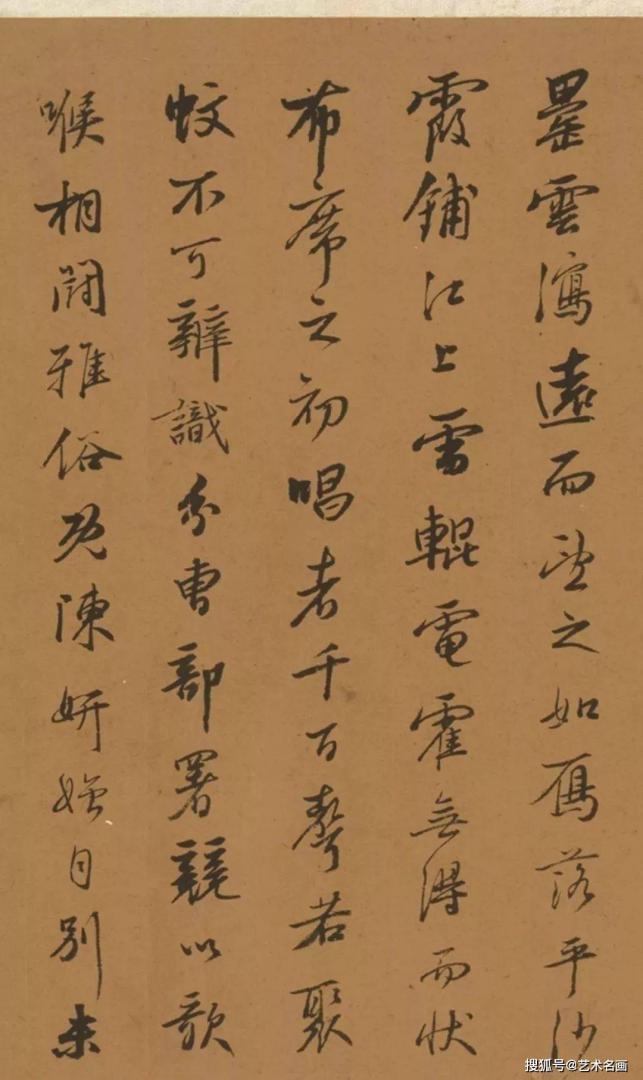 罍雲瀉遠而望之如鴈落平沙
霞鋪江上雷輥電霍無得而狀
布席之初唱者千百聲若聚
蚊不可辨識分曹部署競以歌
喉相鬪雅俗既陳妍媸自別未
搜狐号@艺术名画